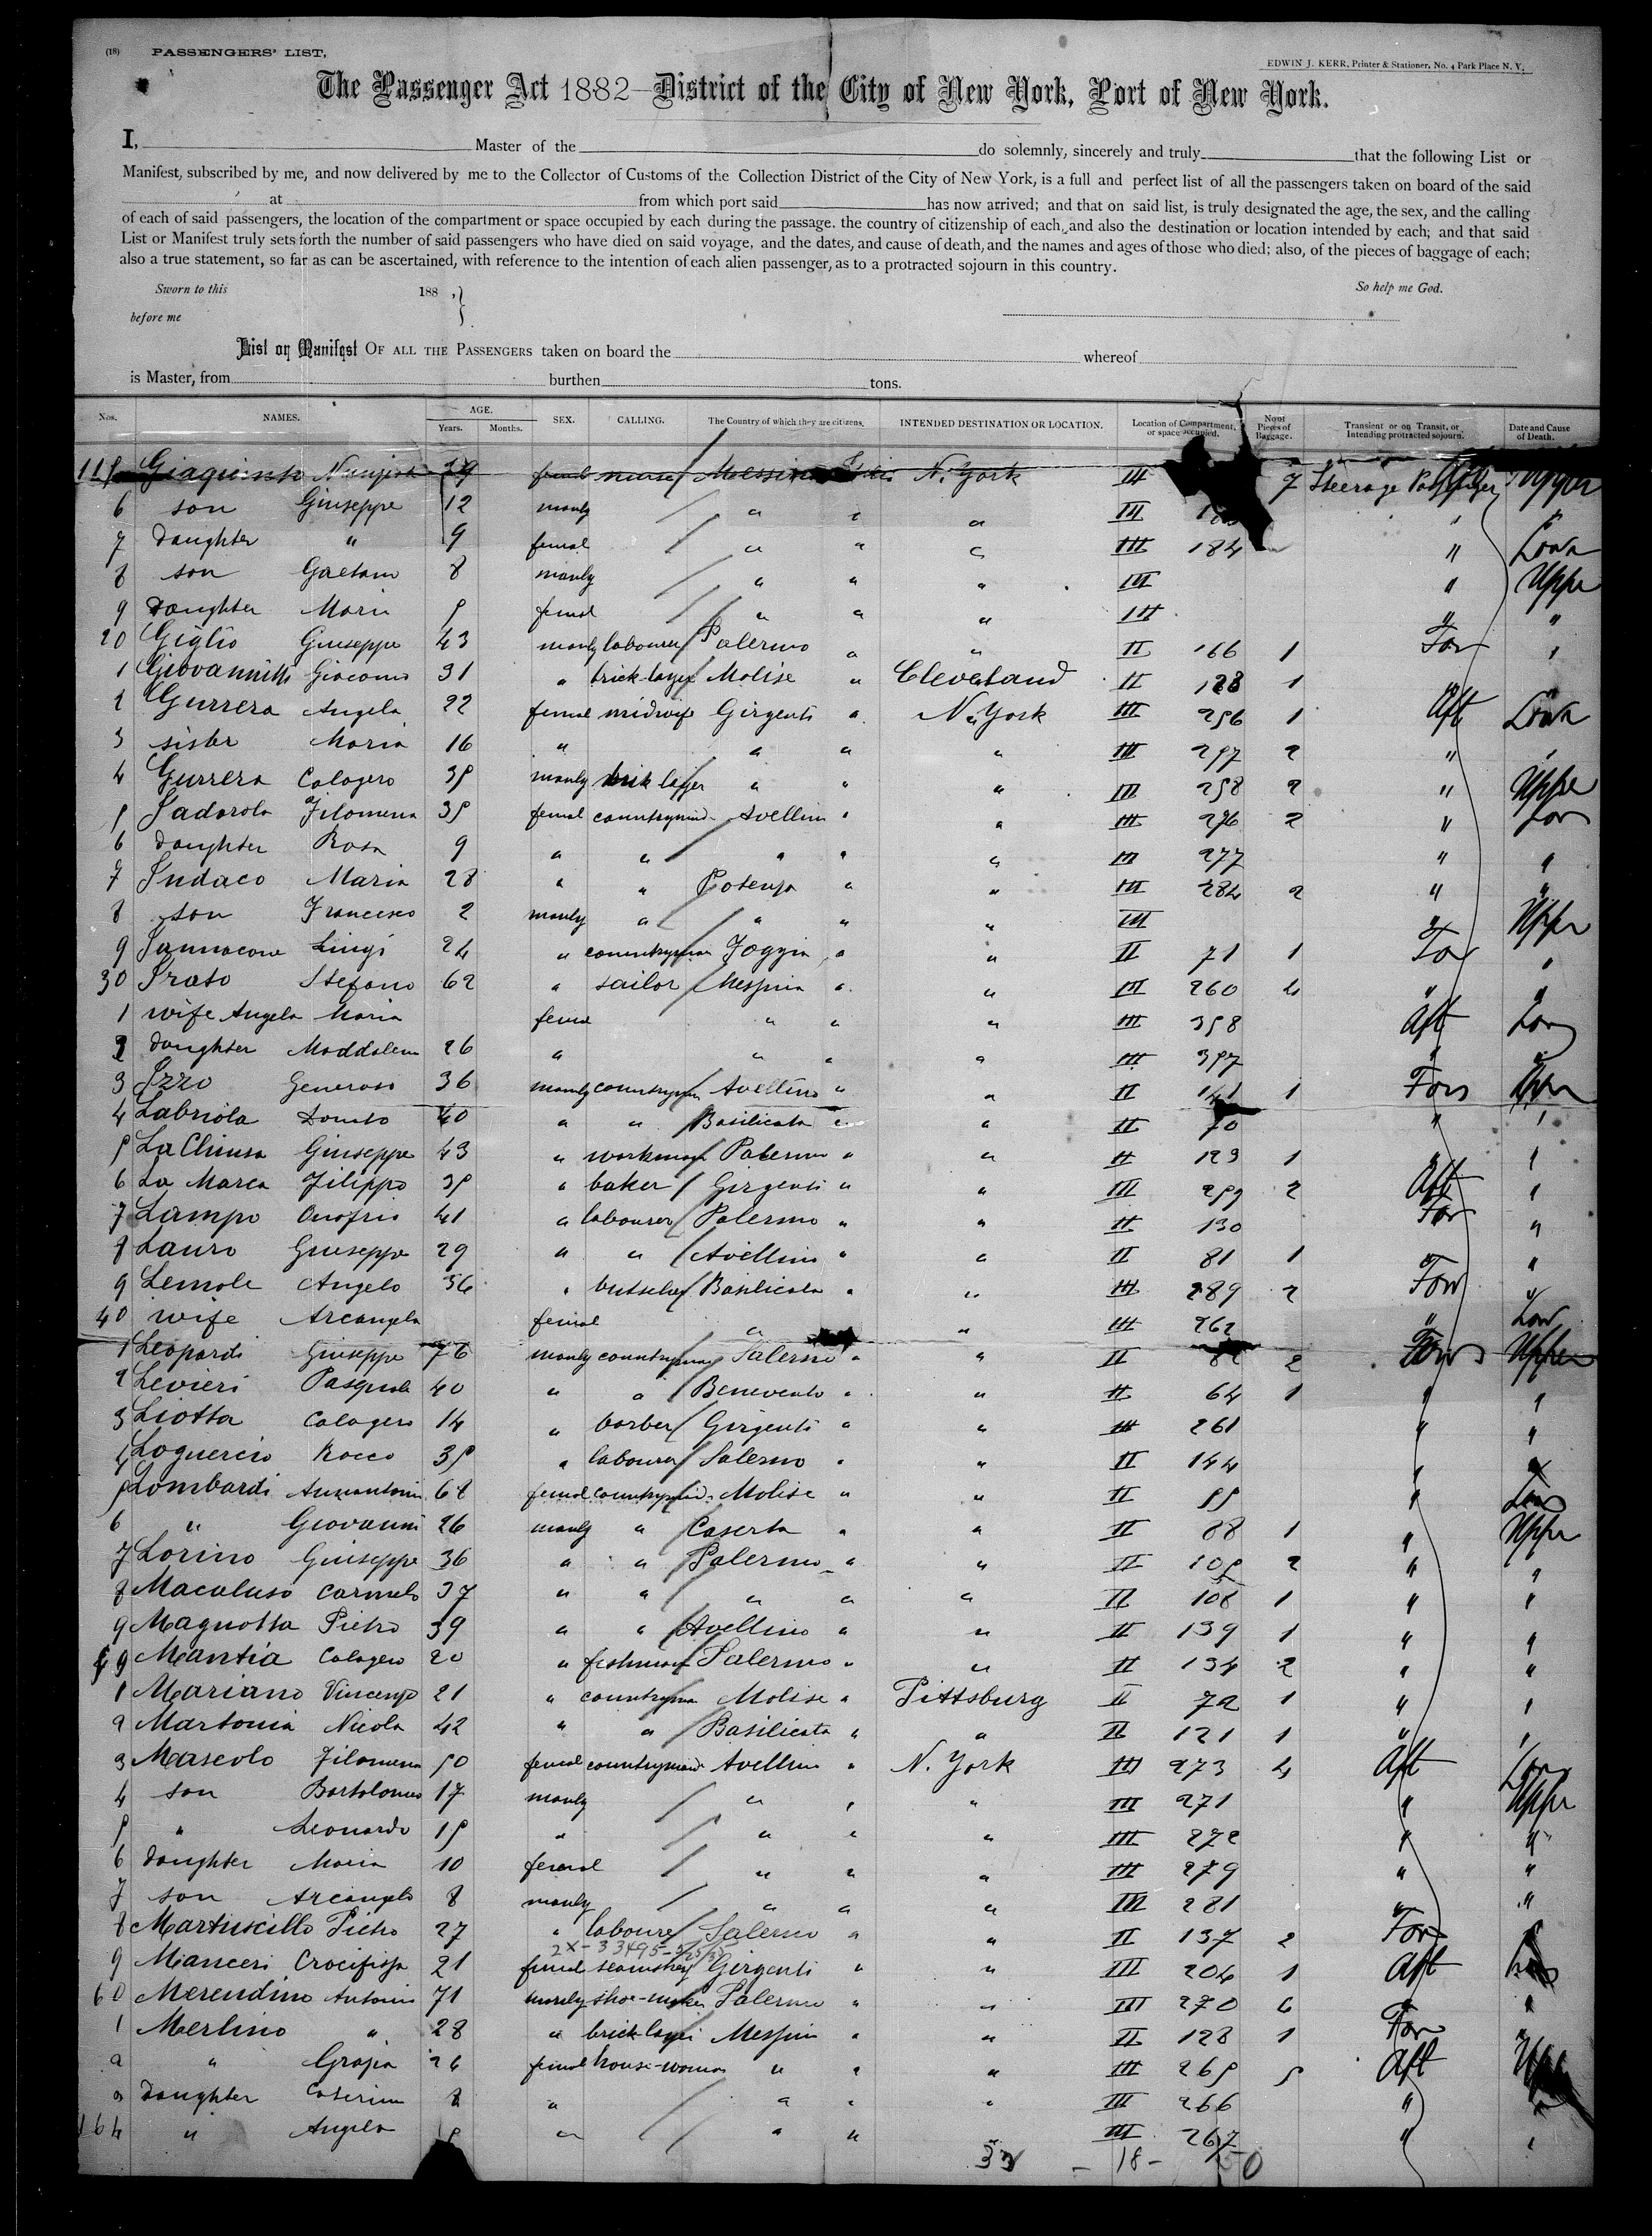 (18) PASSENGERS' LIST,
EDWIN J. KERR, Printer & Stationer, No. 4 Park Place N. Y.
The Passenger Act 1882—District of the City of New York, Port of New York.
I, Master of the do solemnly, sincerely and truly that the following List or
Manifest, subscribed by me, and now delivered by me to the Collector of Customs of the Collection District of the City of New York, is a full and perfect list of all the passengers taken on board of the said
at from which port said has now arrived; and that on said list, is truly designated the age, the sex, and the calling
of each of said passengers, the location of the compartment or space occupied by each during the passage. the country of citizenship of each, and also the destination or location intended by each; and that said
List or Manifest truly sets forth the number of said passengers who have died on said voyage, and the dates, and cause of death, and the names and ages of those who died; also, of the pieces of baggage of each;
also a true statement, so far as can be ascertained, with reference to the intention of each alien passenger, as to a protracted sojourn in this country.
Sworn to this 188 , } So help me God.
before me
List or Manifest OF ALL THE PASSENGERS taken on board the whereof
is Master, from burthen tons.
Nos. NAMES. AGE. Years. Months. SEX. CALLING. The Country of which they are citizens. INTENDED DESTINATION OR LOCATION. Location of Compartment, or space occupied. No of Pieces of Baggage. Transient or on Transit, or Intending protracted sojourn. Date and Cause of Death.
Giaquinto 39 femal nurse Messina N. York III 7 Steerage Upper
6 son Giuseppe 12 manly " " " III
7 daughter " 9 femal " " " III 184 " Low
8 son Gaetano 8 manly " " " III " Uppe
9 daughter Maria 5 femal " " " III " "
20 Giglio Giuseppe 43 manly labourer Palermo " " II 166 1 For "
1 Giacomo 31 " brick-layer Molise " Cleveland II 1 "
2 Gurrera Angela 22 femal midwife Girgenti " N. York III 256 1 Aft Low
3 sister Maria 16 " " " " III 257 2 " "
4 Gurrera Calogero 35 manly brick layer " " " III 258 2 " Uppe
5 Iadarola Filomena 35 femal Avellino " " III 276 2 " Low
6 daughter Rosa 9 " " " " " III 277 " "
7 Indaco Maria 28 " " Potenza " " III 284 2 " "
8 son Francesco 2 manly " " " " III " Upper
9 Iannacone Luigi 24 " countryman Foggia " " II 71 1 For "
30 Prato Stefano 62 " sailor Messina " " III 260 4 " "
1 wife Angela Maria femal " " " III 358 Aft Low
2 daughter Maddalena 26 " " " " III 357 " "
3 Izzo Generoso 36 manly countryman Avellino " " II 141 1 For Upper
4 Labriola Donato 40 " " Basilicata " " II 70 " "
5 La Chiusa Giuseppe 43 " workman Palermo " " II 123 1 " "
6 La Marca Filippo 35 " baker Girgenti " " III 259 2 Aft "
7 Lampo Onofrio 41 " labourer Palermo " " II 130 For "
8 Lauro Giuseppe 29 " " Avellino " " II 81 1 " "
9 Lemole Angelo 36 " butscher Basilicata " " III 289 2 For "
40 wife Arcangela femal " " III 262 " Low
1 Leopardi Giuseppe 76 manly countryman Palermo " " II 2 For Upper
2 Levieri Pasquale 40 " " Benevento " " II 64 1 " "
3 Liotta Calogero 14 " barber Girgenti " " III 261 " "
4 Loguercio Rocco 35 " labourer Salerno " " II 144 " "
5 Lombardi 68 femal Molise " " II 55 " Low
6 " Giovanni 26 manly " Caserta " " II 88 1 " Upper
7 Lorino Giuseppe 36 " " Palermo " " II 105 2 " "
8 Macaluso Carmelo 37 " " " " " II 108 1 " "
9 Magnotta Pietro 39 " " Avellino " " II 139 1 " "
Mantia Calogero 20 " Palermo " " II 134 2 " "
1 Mariano Vincenzo 21 " countryman Molise " Pittsburg II 72 1 " "
2 Martonia Nicola 42 " " Basilicata " " II 121 1 " "
3 Mascolo Filomena 50 femal Avellino " N. York III 273 4 Aft Low
4 son Bartolomeo 17 manly " " " III 271 " Upper
5 " Leonardo 15 " " " " III 272 " "
6 daughter Maria 10 femal " " " III 279 " "
7 son Arcangelo 8 manly " " " III 281 " "
8 Martuscillo Pietro 27 " laboure Salerno " " II 137 2 For "
2X-33495-
9 Manceri Crocifissa 21 femal Girgenti " " III 204 1 Aft
60 Merendino Antonio 71 manly shoe-maker Palermo " " III 270 6 " "
1 Merlino " 28 " brick-layer Messina " " II 128 1 For "
2 " Grazia 26 femal house-woman " " " III 265 5 Aft
3 daughter Caterina 8 " " " " III 266 "
164 " Angela " " " " III 267 " "
33 - 18 - 50